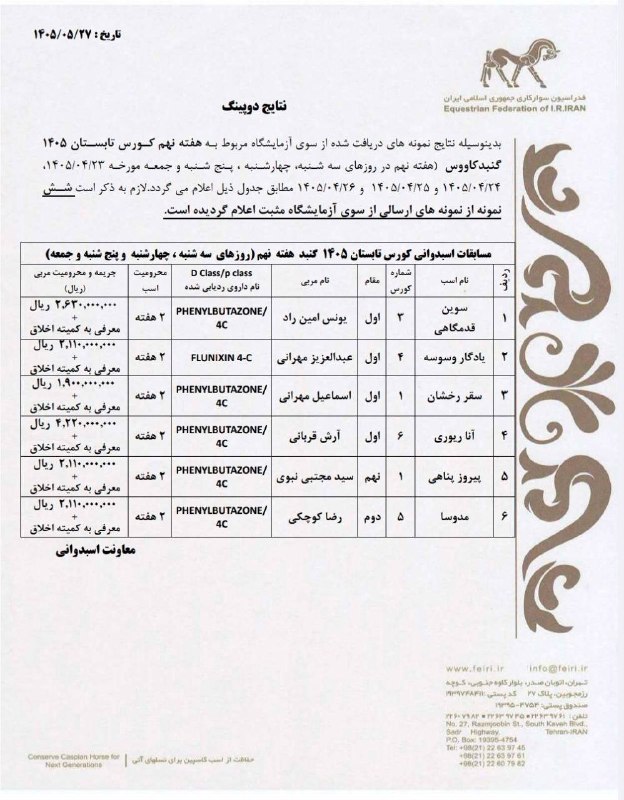 تاریخ : ۱۴۰۵/۰۵/۲۷
فدراسیون سوارکاری جمهوری اسلامی ایران
Equestrian Federation of I.R.IRAN
نتایج دوپینگ
بدینوسیله نتایج نمونه های دریافت شده از سوی آزمایشگاه مربوط به هفته نهم کورس تابستان ۱۴۰۵
گنبدکاووس (هفته نهم در روزهای سه شنبه، چهارشنبه ، پنج شنبه و جمعه مورخه ۱۴۰۵/۰۴/۲۳،
۱۴۰۵/۰۴/۲۴ و ۱۴۰۵/۰۴/۲۵ و ۱۴۰۵/۰۴/۲۶ مطابق جدول ذیل اعلام می گردد.لازم به ذکر است شش
نمونه از نمونه های ارسالی از سوی آزمایشگاه مثبت اعلام گردیده است.
مسابقات اسبدوانی کورس تابستان ۱۴۰۵ گنبد هفته نهم (روزهای سه شنبه ، چهارشنبه و پنج شنبه و جمعه)
ردیف نام اسب شماره کورس مقام نام مربی D Class/p class نام داروی ردیابی شده محرومیت اسب جریمه و محرومیت مربی (ریال)
۱ سوین قدمگاهی ۳ اول یونس امین راد PHENYLBUTAZONE/ 4C ۲ هفته ۲,۶۳۰,۰۰۰,۰۰۰ ریال + معرفی به کمیته اخلاق
۲ یادگار وسوسه ۴ اول عبدالعزیز مهرانی FLUNIXIN 4-C ۲ هفته ۲,۱۱۰,۰۰۰,۰۰۰ ریال + معرفی به کمیته اخلاق
۳ سقر رخشان ۱ اول اسماعیل مهرانی PHENYLBUTAZONE/ 4C ۲ هفته ۱,۹۰۰,۰۰۰,۰۰۰ ریال + معرفی به کمیته اخلاق
۴ آنا ریوری ۶ اول آرش قربانی PHENYLBUTAZONE/ 4C ۲ هفته ۴,۲۲۰,۰۰۰,۰۰۰ ریال + معرفی به کمیته اخلاق
۵ پیروز پناهی ۱ نهم سید مجتبی نبوی PHENYLBUTAZONE/ 4C ۲ هفته ۲,۱۱۰,۰۰۰,۰۰۰ ریال + معرفی به کمیته اخلاق
۶ مدوسا ۵ دوم رضا کوچکی PHENYLBUTAZONE/ 4C ۲ هفته ۲,۱۱۰,۰۰۰,۰۰۰ ریال + معرفی به کمیته اخلاق
معاونت اسبدوانی
www.feiri.ir info@feiri.ir
تهران، اتوبان صدر، بلوار کاوه جنوبی، کوچه
رزمجویین، پلاک ۲۷ کد پستی:
صندوق پستی: ۴۷۵۴-۱۹۳۹۵
تلفن: ۲۲۶۳۹۷۶۱ ■ ۲۲۶۳۹۷۴۵ ■ ۲۲۶۰۷۹۸۲
No. 27, Raumjoobin St., South Kaveh Blvd.,
Sadr Highway, Tehran-IRAN
P.O. Box: 19395-4754
Tel: +98(21) 22 63 97 45
+98(21) 22 63 97 61
+98(21) 22 60 79 82
حفاظت از اسب کاسپین برای نسلهای آتی
Conserve Caspian Horse for
Next Generations